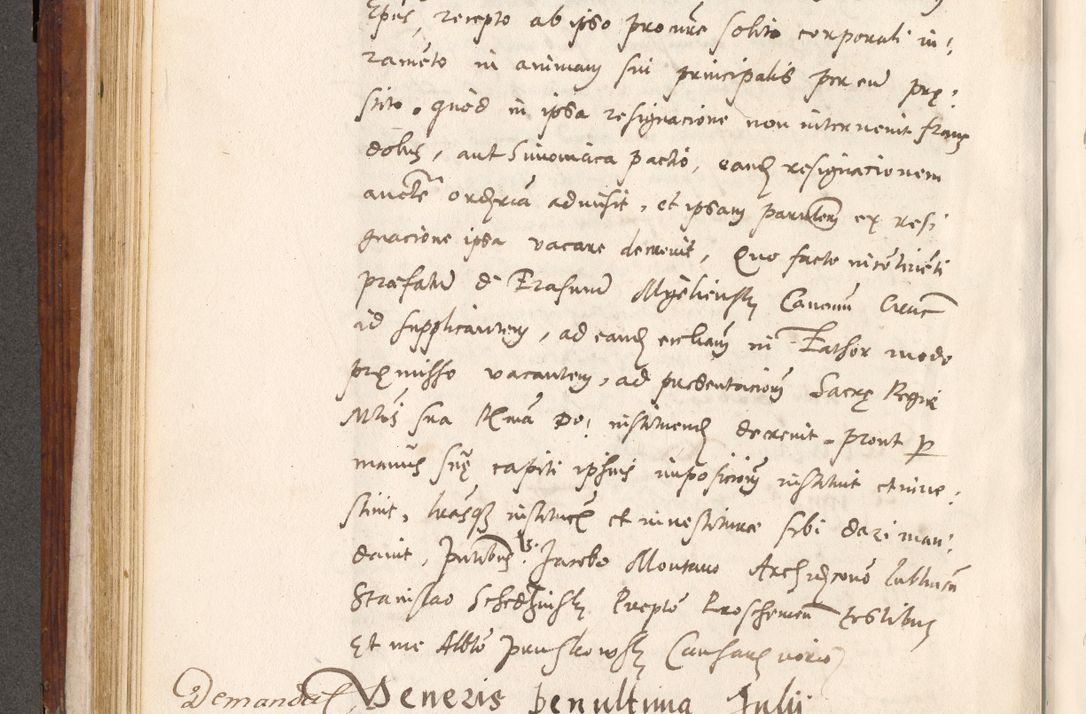 Epus, recepto ab ipso procure solito corporali iu:
ramento in animam sui principalis per eum prę:
stito, quod in ipsa resignacione non intervenit fraus
dolus, aut Simoniaca pactio, eand resignationem
aucte ordria admisit, et ipsam parolem ex resi
gnacione ipsa vacare decrevit, Quo facto incontinenti
præfatum D Erasmum Mychiensky Canonm Cracc
id supplicantem, ad eand eccliam in Tathor modo
prę misso vacantem, ad presentacionem Sacrę Regie
Mtis sua Rma Do: instituend decrevit, prout per
manus suę capiti ipsius imposicionem instituit et inve:
stivit, lrasq institucis et investiturae sibi dari man:
davit, Pntibus: Jacobo Montano Archidcono Lublinen
Stanislao Schedzinsky Prepto Proschemen testibus
Et me Albto Pruskowsky Causarum notario
Demandat Veneris Penultima Julij